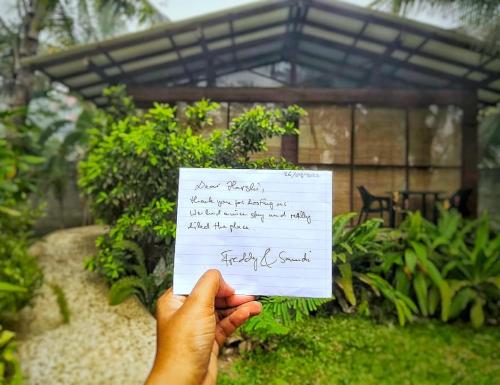 Dear Harshi,
thank you for hosting us
We had a nice stay and really
liked the place
Freddy & Saundi